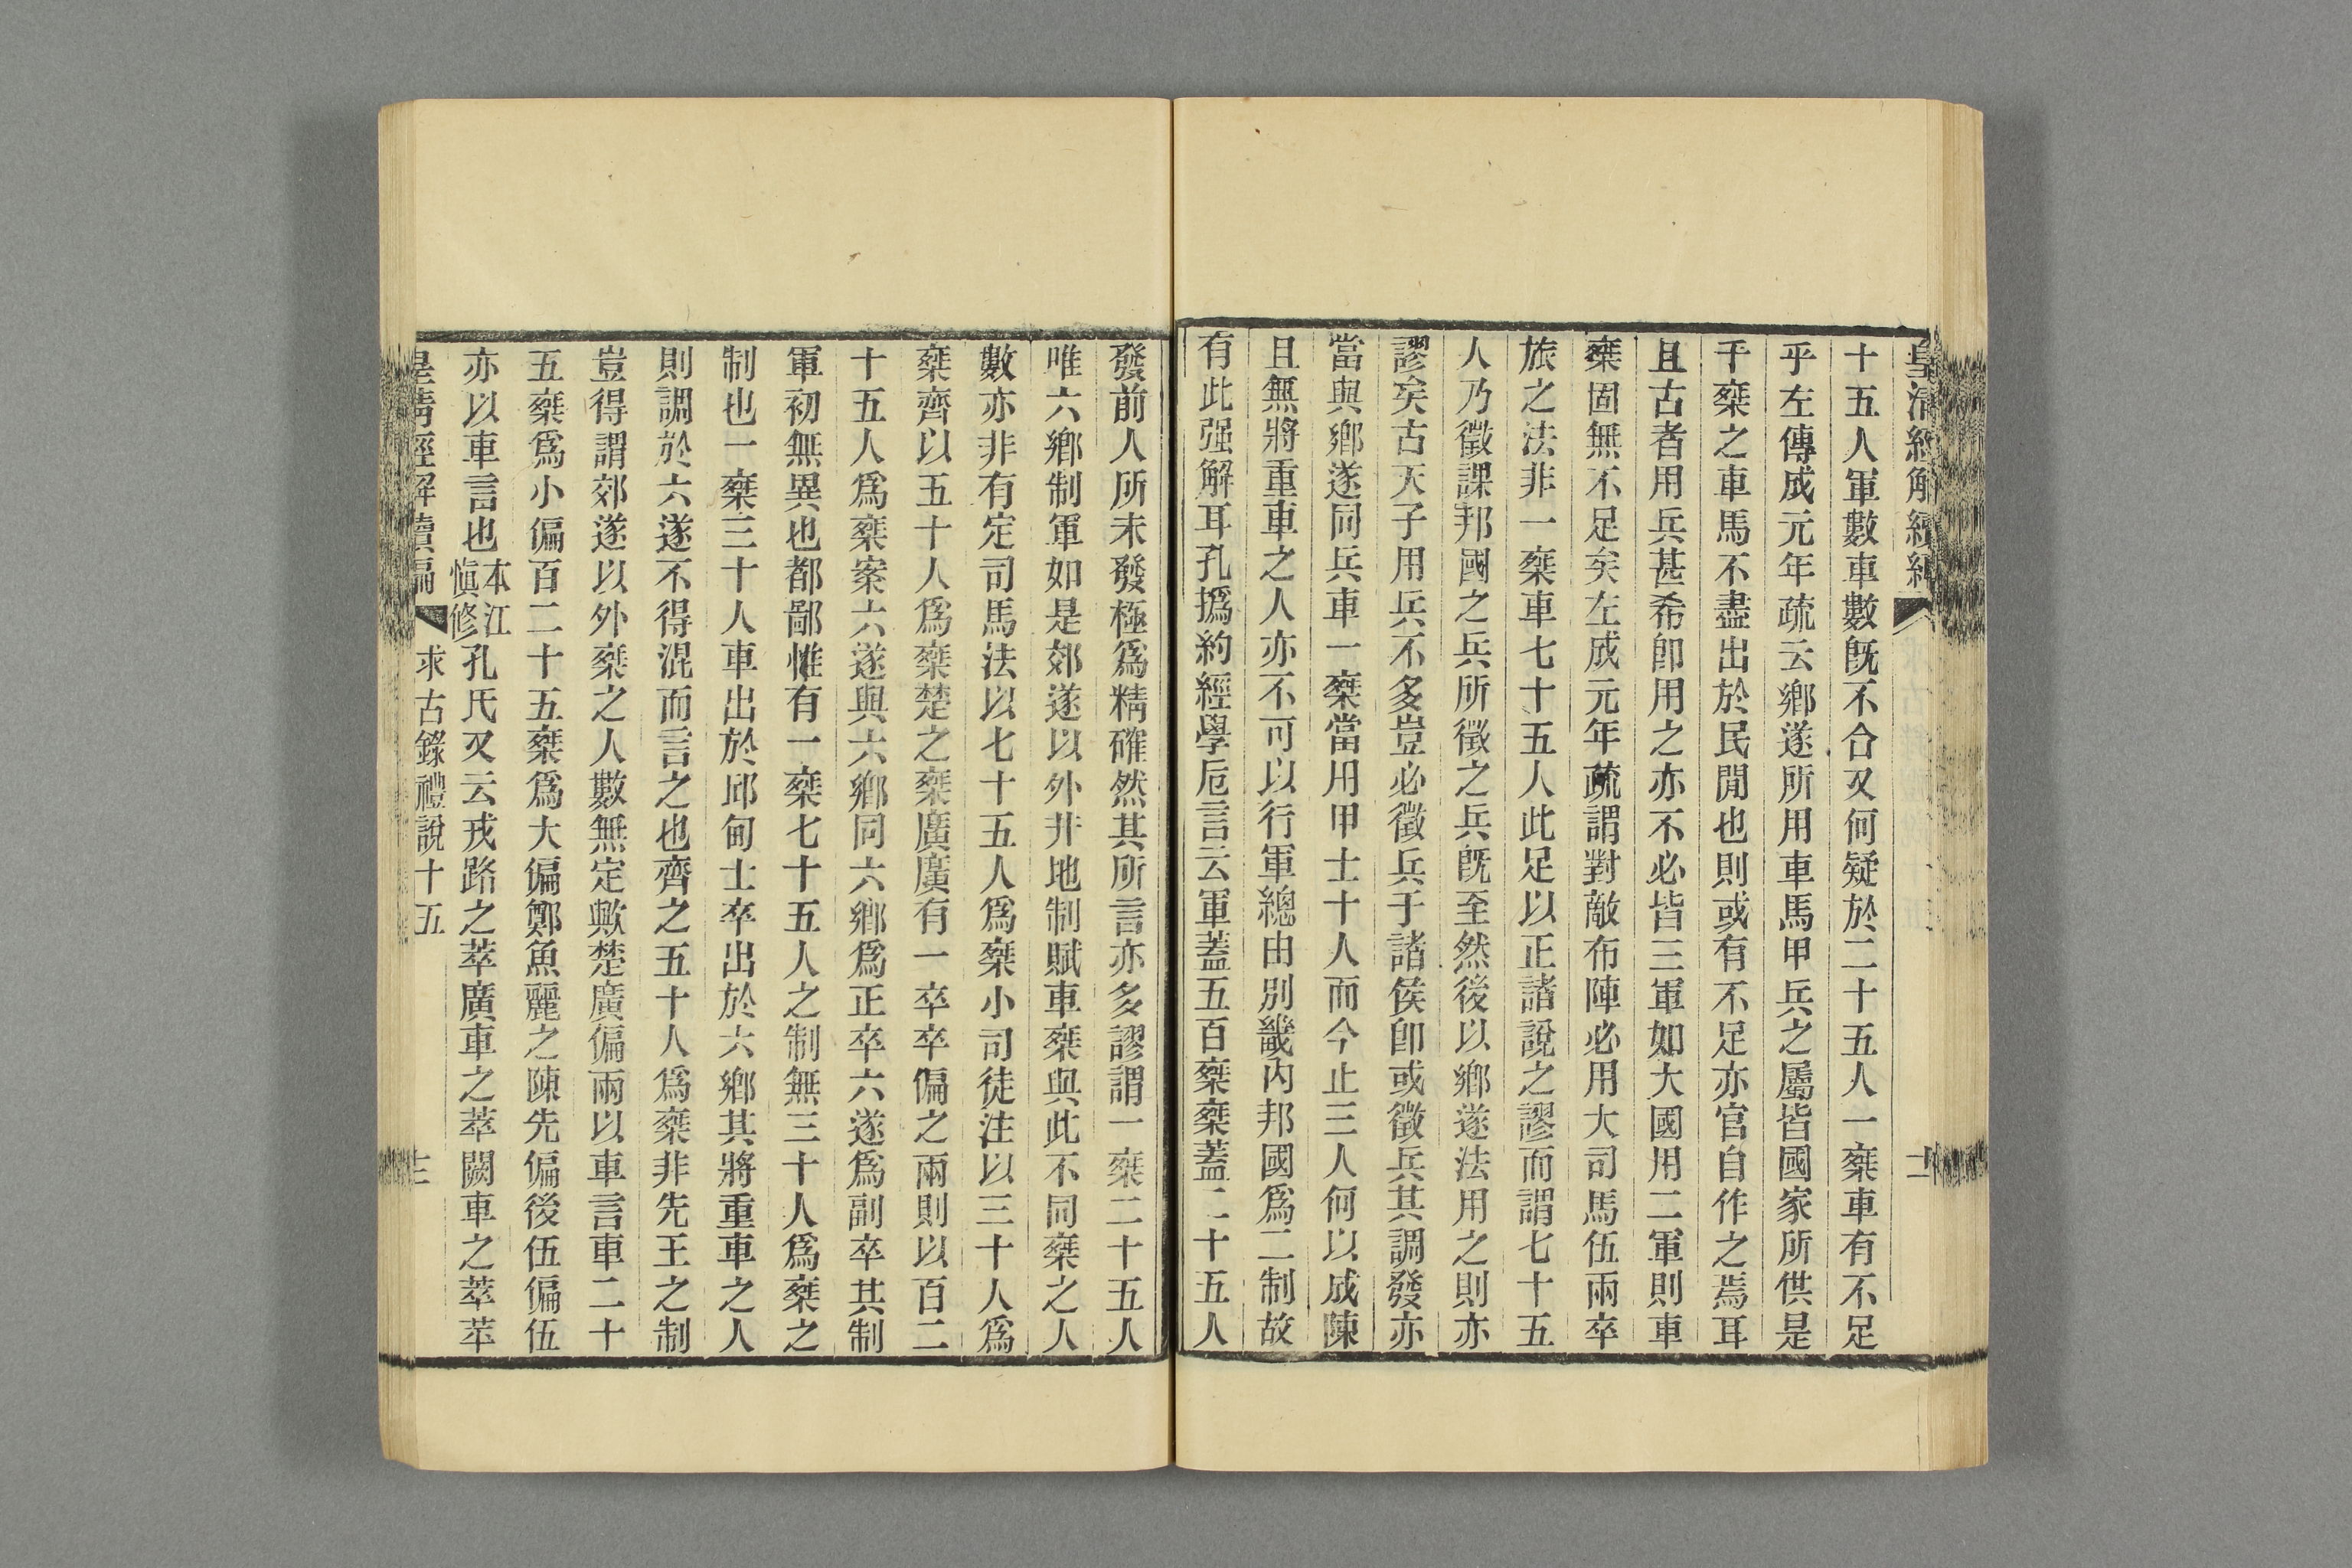 皇清經解續編
十五人軍數車數旣不合又何疑於二十五人一椉車有不足
乎左傳成元年疏云鄉遂所用車馬甲兵之屬皆國家所供是
千椉之車馬不盡出於民閒也則或有不足亦官自作之焉耳
且古者用兵甚希卽用之亦不必皆三軍如大國用二軍則車
椉固無不足矣左成元年疏謂對敵布陣必用大司馬伍兩卒
旅之法非一椉車七十五人此足以正諸說之謬而謂七十五
人乃徵課邦國之兵所徵之兵旣至然後以鄉遂法用之則亦
謬矣古天子用兵不多豈必徵兵于諸侯卽或徵兵其調發亦
當與鄉遂同兵車一椉當用甲士十人而今止三人何以成陳
且無將重車之人亦不可以行軍總由別畿內邦國爲二制故
有此强解耳孔撝約經學卮言云軍蓋五百椉椉蓋二十五人
發前人所未發極爲精確然其所言亦多謬謂一椉二十五人
唯六鄉制軍如是郊遂以外井地制賦車椉與此不同椉之人
數亦非有定司馬法以七十五人爲椉小司徒注以三十人爲
椉齊以五十人爲椉楚之椉廣廣有一卒卒偏之兩則以百二
十五人爲椉案六遂與六鄉同六鄉爲正卒六遂爲副卒其制
軍初無異也都鄙惟有一椉七十五人之制無三十人爲椉之
制也一椉三十人車出於邱甸士卒出於六鄉其將重車之人
則調於六遂不得混而言之也齊之五十人爲椉非先王之制
豈得謂郊遂以外椉之人數無定歟楚廣偏兩以車言車二十
五椉爲小偏百二十五椉爲大偏鄭魚麗之陳先偏後伍偏伍
亦以車言也本江愼修孔氏又云戎路之萃廣車之萃闕車之萃苹
皇清經解續編 求古錄禮說十五